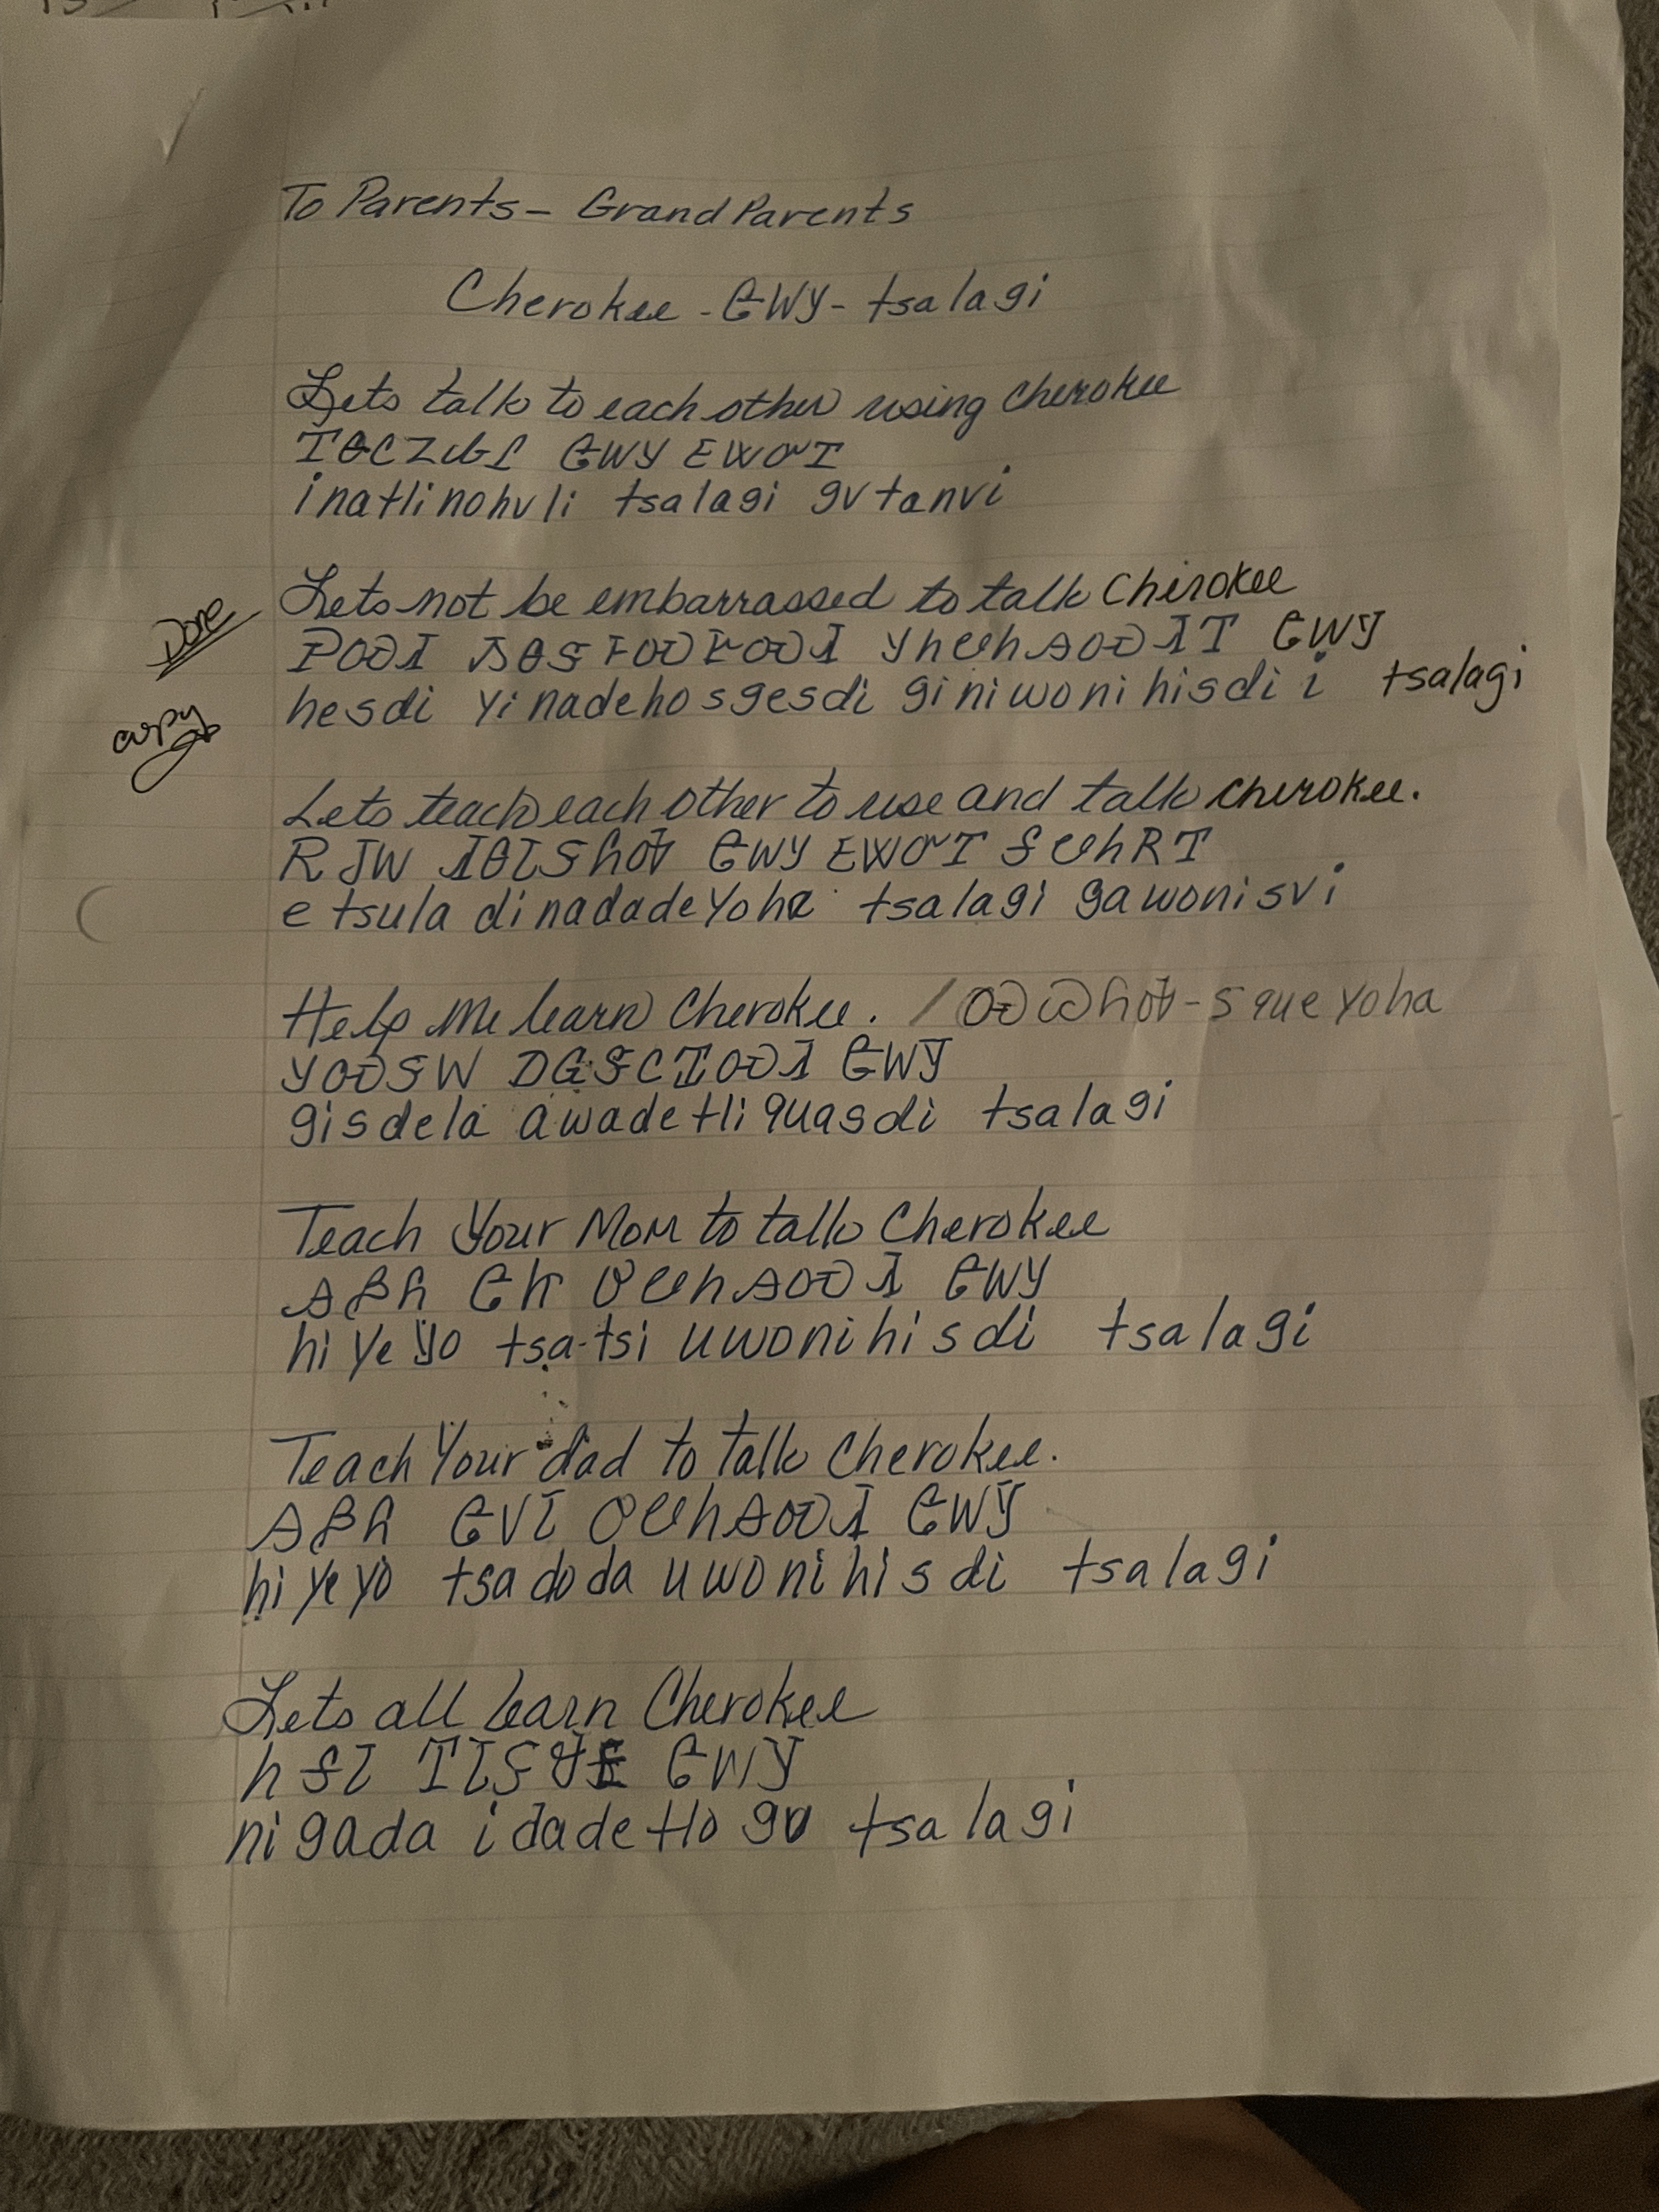 To Parents - Grand Parents
Cherokee - ᏣᎳᎩ - tsalagi
Lets talk to each other using Cherokee
ᎢᎾᏟᏃᎲᎵ ᏣᎳᎩ ᎬᏔᏅᎢ
inatlinohvli tsalagi gvtanvi
Done
Lets not be embarrassed to talk Cherokee
ᎮᏍᏗ ᏱᎾᏕᎰᏍᎨᏍᏗ ᎩᏂᏬᏂᎯᏍᏗᎢ ᏣᎳᎩ
hesdi yinadehosgesdi giniwonihisdi i tsalagi
copy
Lets teach each other to use and talk Cherokee.
Ꭱ ᏧᎳ ᏗᎾᏓᏕᏲᎭ ᏣᎳᎩ ᎬᏔᏅᎢ ᎦᏬᏂᏒᎢ
e tsula dinadadeyoha tsalagi gawonisvi
Help me learn Cherokee. / ᏍᏇᏲᎭ - squeyoha
ᎩᏍᏕᎳ ᎠᏩᏕᏟᏆᏍᏗ ᏣᎳᎩ
gisdela awadetliquasdi tsalagi
Teach your Mom to talk Cherokee
ᎯᏰᏲ ᏣᏥ ᎤᏬᏂᎯᏍᏗ ᏣᎳᎩ
hiyeyo tsa-tsi uwonihisdi tsalagi
Teach Your dad to talk Cherokee.
ᎯᏰᏲ ᏣᏙᏓ ᎤᏬᏂᎯᏍᏗ ᏣᎳᎩ
hiyeyo tsadoda uwonihisdi tsalagi
Lets all learn Cherokee
ᏂᎦᏓ ᎢᏓᏕᏠᎬ ᏣᎳᎩ
nigada idadetlogv tsalagi